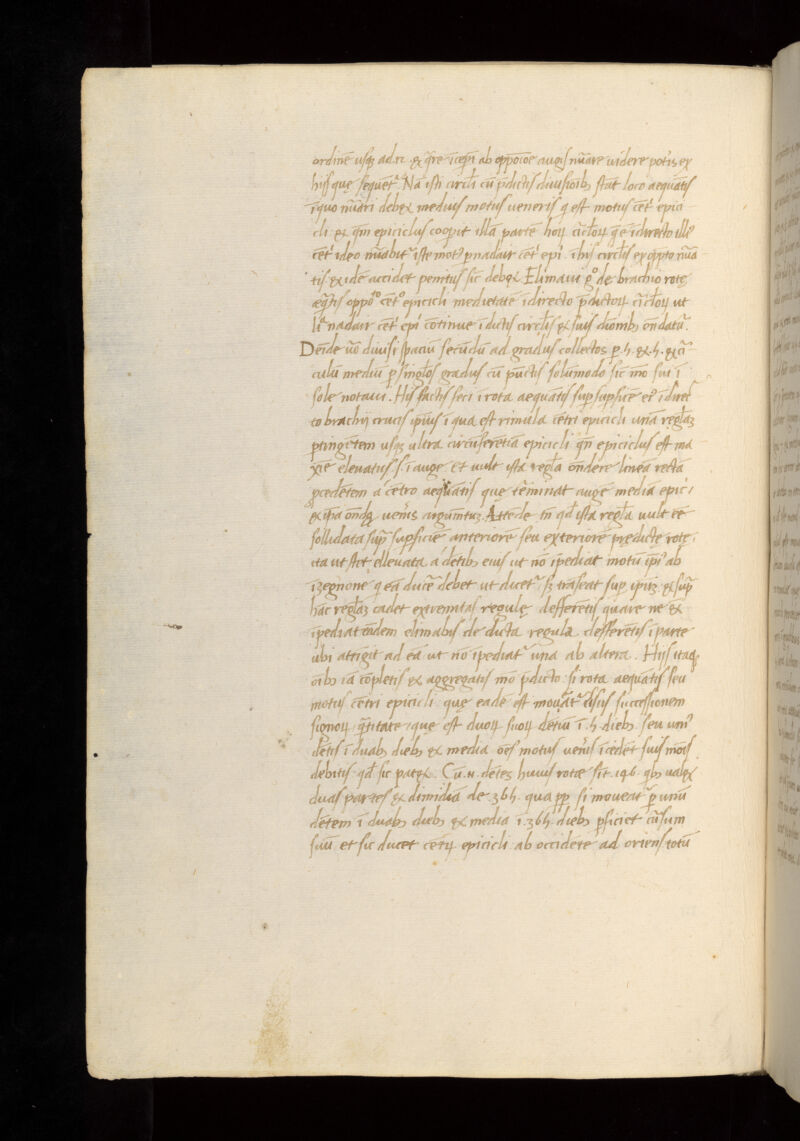 ordinē usq₃ ad .12. et q̄re ī cep̄i ab oppōiōe augis nūare uidere potis ex
hijs que sequēt᷑. Nā isti circl̄i cū p̄dictis diuisionib₃ stāt loco aequātis
ī quo nūari debet medius motus ueneris q est motus cēt᷑ epici
cli et qm̄ epiciclus coopit illā partē hoꝝ circl̄oꝝ que ī directo illi᷒
cēt᷑ ideo nūabit᷑ iste mot᷒ p nadair cēt᷑ epi ī hijs circl̄is ex opp̄to nūa
tis et idē accidet penitus sic debet. Elimaui g° de brachio rote
aeq̄tis oppō° cēt° epicicli medietatē ī directo p̄dictoꝝ circl̄oꝝ ut
nadair cēt᷑ epi cōtinue ī dictis circl̄is et suis diōnib₃ ōndat᷑.
Deīde uō diuisi spaciū secūdū ad gradus collectos p .5. et .5. et cir
culū mediū p singl̄os gradus cū pūctis solūmodo sic mō fui ī
sole notaui. Hijs factis feci ī rota aequātis sup supficiē ei᷒ ī direc
to brachij crucis ipius ī qua est rimula cētri epicicli unā regl̄aȝ
ptingētem usq₃ ultra circūferetiā epicicli qn̄ epiciclus est ma
xīe eleuatus .s. ī auge et uult ista regl̄a ōndere lineā rectā
pcedētem a cētro aequātis que tēminat augē mediā epici
et ipa ōndet uenis argumtuȝ. Attēde tn̄ qd ista regl̄a uult eē
sollidata sup supficiē anteriorē seu exteriorē predicte rote,
ita ut stet elleuata a dētib₃ eius ut nō īpediat motū ipi᷒ ab
īȝegnone q eā ducē debet ut ducet᷑ sȝ trāseat sup ipuȝ et sup
hāc reglaȝ cadet extremitas regule defferētis quare ne et
īpediat eādem elimabis de ducta regula defferētis ī parte
ubi attīgit ad eā ut nō īpediat᷑ una ab altera. Hijs itaq₃
oīb₃ iā cōpletis et aggregatis mō p̄dicto si rota aequātis seu
motus cētri epicicli que eadē est mouat᷑ ad sius successionem
signoꝝ q̄titate que est duoꝝ suoꝝ dētiū ī .5. dieb₃ seu uni᷒
dētis ī duab₃ dieb₃ et media oēs motus uenis īcedēt suis motis
debitis qd sic patet. Cū .n. dētes huius rotae sīt .146. qb₃ ualet
duas partes et dimidiā de 365. qua pp si moueat᷑ p unū
dētem ī duab₃ dieb₃ et media ī .365. dieb₃ pficiet cūsum
suū et sic ducet cētꝝ epicicli ab occidēte ad oriens totū